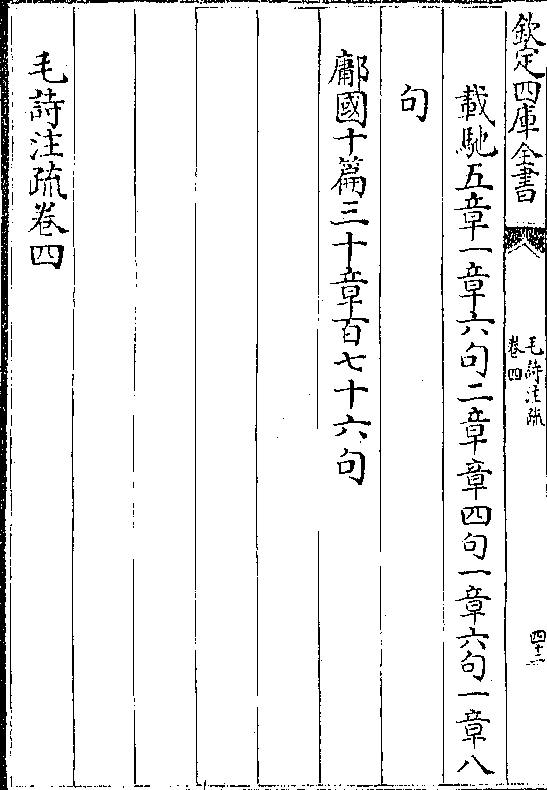 欽定四庫全書
毛詩注疏
卷四
四十二
載馳五章一章六句二章章四句一章六句一章八
句
鄘國十篇三十章百七十六句
毛詩注疏卷四